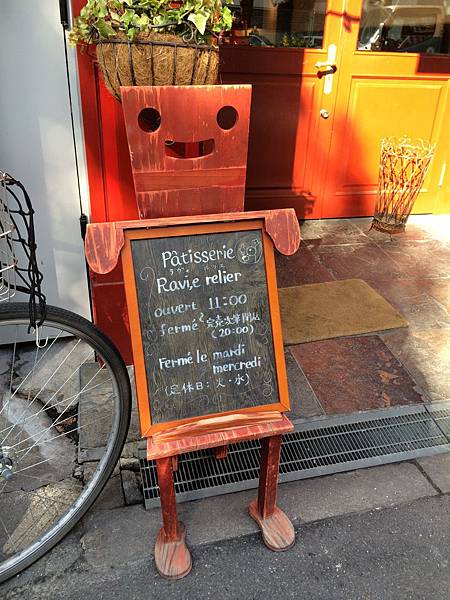 Pâtisserie
Ravie relier
ouvert 11:00
fermé 完売次第閉店
(20:00)
Fermé le mardi
mercredi
(定休日:火・水)